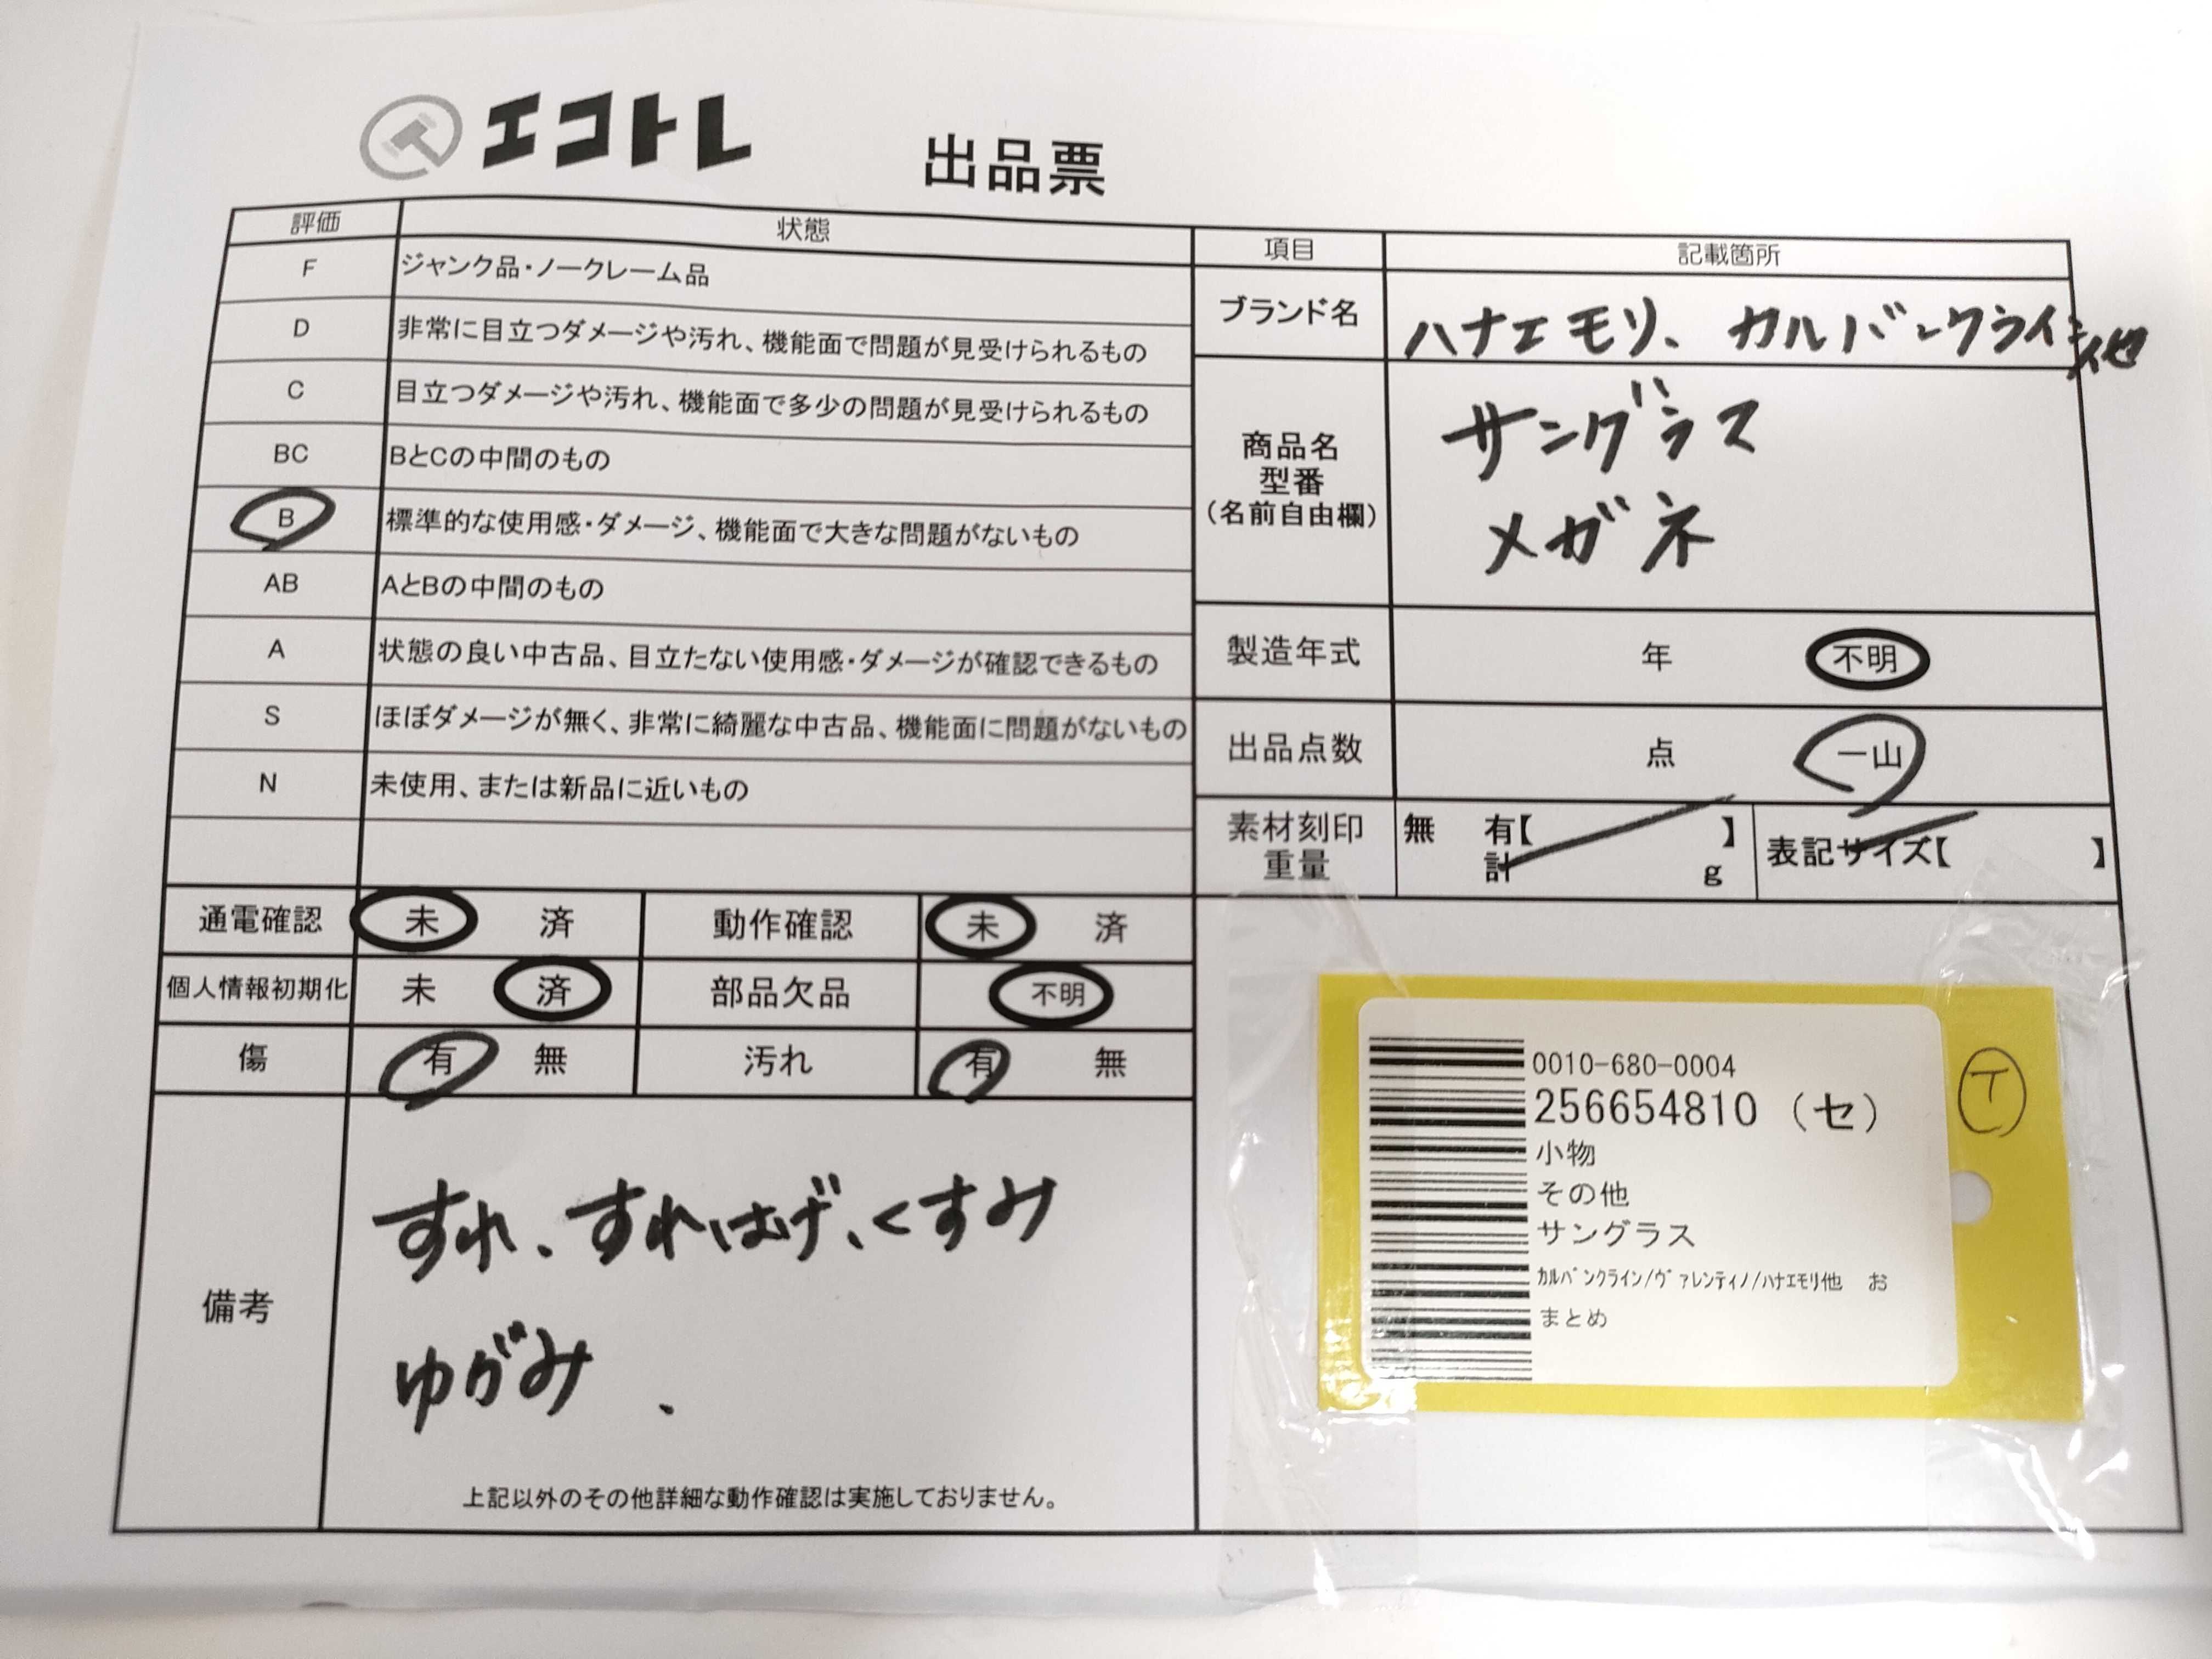 エコトレ
出品票
評価 状態
F ジャンク品・ノークレーム品
D 非常に目立つダメージや汚れ、機能面で問題が見受けられるもの
C 目立つダメージや汚れ、機能面で多少の問題が見受けられるもの
BC BとCの中間のもの
B 標準的な使用感・ダメージ、機能面で大きな問題がないもの
AB AとBの中間のもの
A 状態の良い中古品、目立たない使用感・ダメージが確認できるもの
S ほぼダメージが無く、非常に綺麗な中古品、機能面に問題がないもの
N 未使用、または新品に近いもの
項目 記載箇所
ブランド名 ハナエモリ、カルバンクライン他
商品名
型番
(名前自由欄)
サングラス
メガネ
製造年式 年 不明
出品点数 点 一山
素材刻印 無 有【 】
重量 計 g
表記サイズ【 】
通電確認 未 済 動作確認 未 済
個人情報初期化 未 済 部品欠品 不明
傷 有 無 汚れ 有 無
備考
すれ、すれはげ、くすみ
ゆがみ、
上記以外のその他詳細な動作確認は実施しておりません。
0010-680-0004
256654810 (セ)
小物
その他
サングラス
ｶﾙﾊﾞﾝｸﾗｲﾝ/ｳﾞｧﾚﾝﾃｨﾉ/ﾊﾅｴﾓﾘ他 お
まとめ